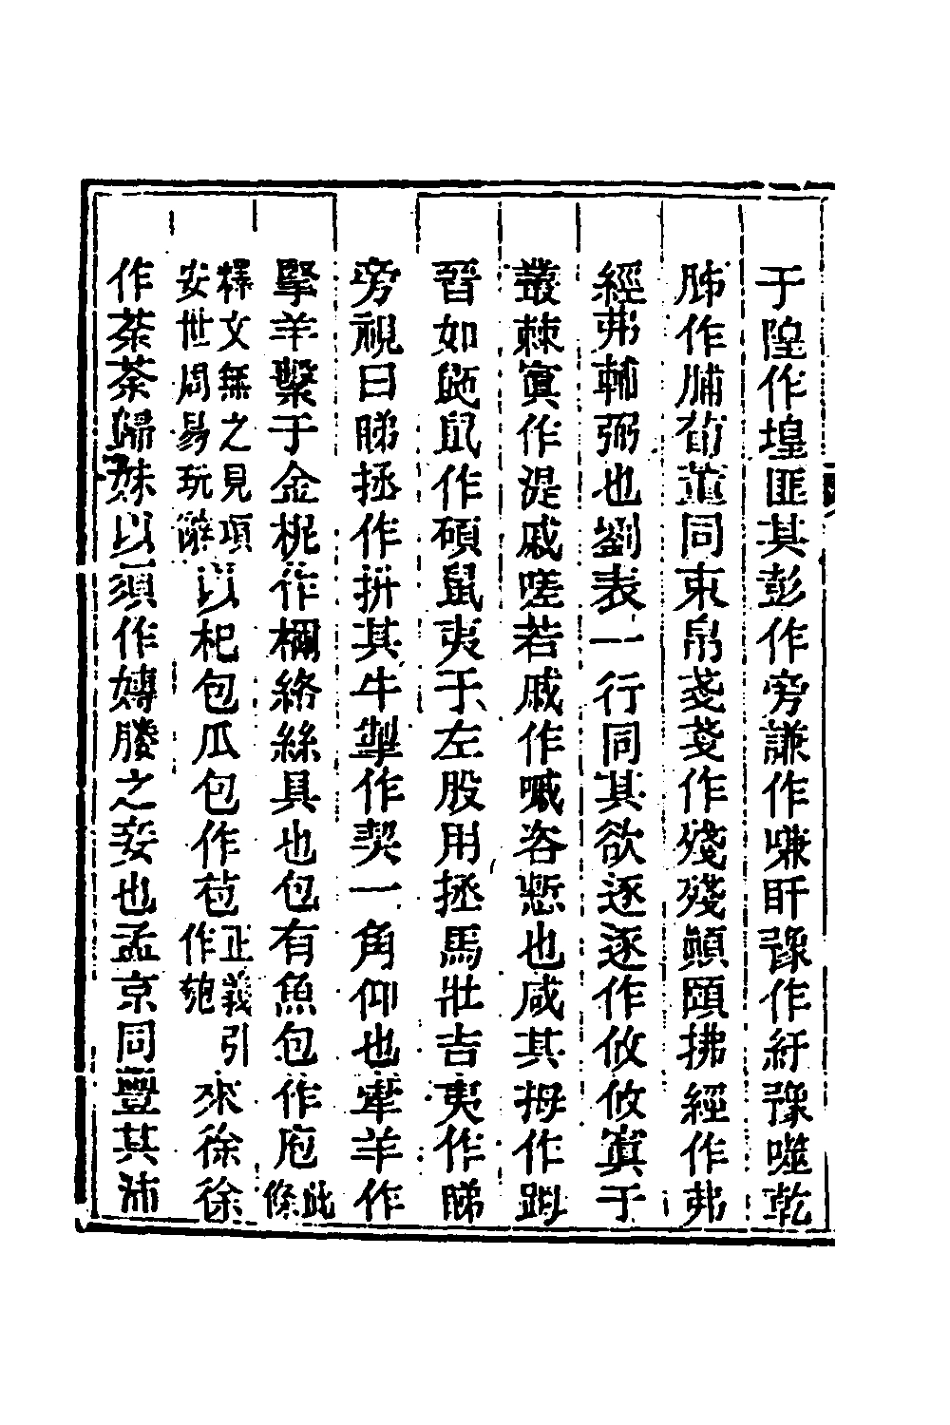 于隍作堭匪其彭作旁謙作嗛盱豫作紆豫噬乾
胏作脯荀董同束帛戔戔作殘殘顛頤拂經作弗
經弗輔弼也劉表一行同其欲逐逐作攸攸寘于
叢棘寘作湜戚嗟若戚作嘁咨慙也咸其拇作𨈛
晉如鼫鼠作碩鼠夷于左股用拯馬壯吉夷作睇
旁視曰睇拯作拼其牛掣作契一角仰也牽羊作
掔羊繫于金柅作檷絡絲具也包有魚包作庖此條
釋文無之見項安世周易玩辭以杞包瓜包作苞正義引作匏來徐徐
作荼荼歸妹以須作嬬媵之妾也孟京同豐其沛